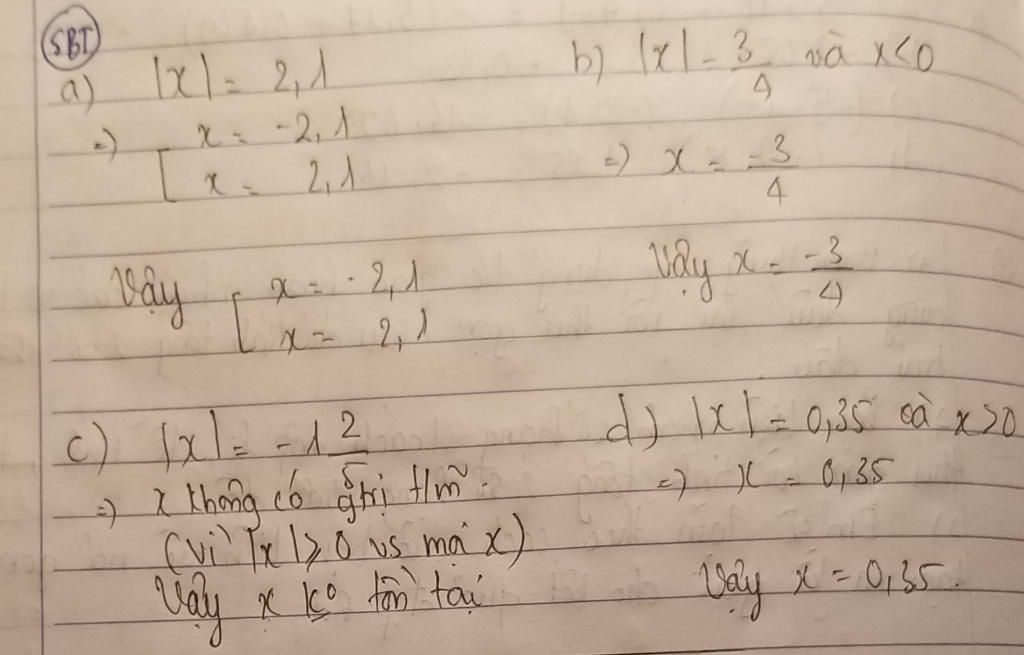 SBT
a) |x| = 2,1
=> [ x = -2,1
x = 2,1
Vậy [ x = -2,1
x = 2,1
b) |x| = 3/4 và x<0
=> x = -3/4
Vậy x = -3/4
c) |x| = -1 2/5
=> x không có gtrị t/m.
(vì |x| ≥ 0 vs mọi x)
Vậy x ko tồn tại
d) |x| = 0,35 và x>0
=> x = 0,35
Vậy x = 0,35.